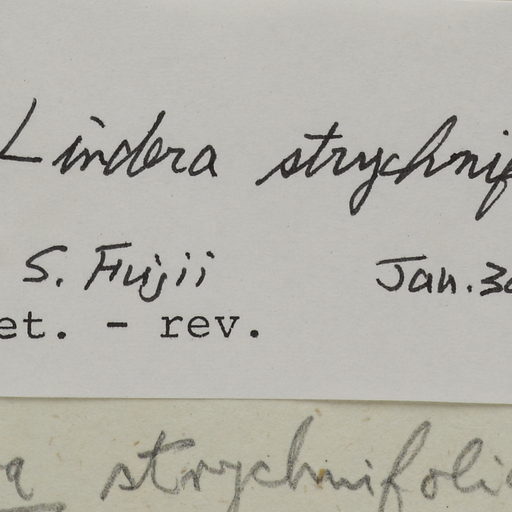 Lindera strychnif
S. Fujii Jan. 30
et. - rev.
a strychnifolia